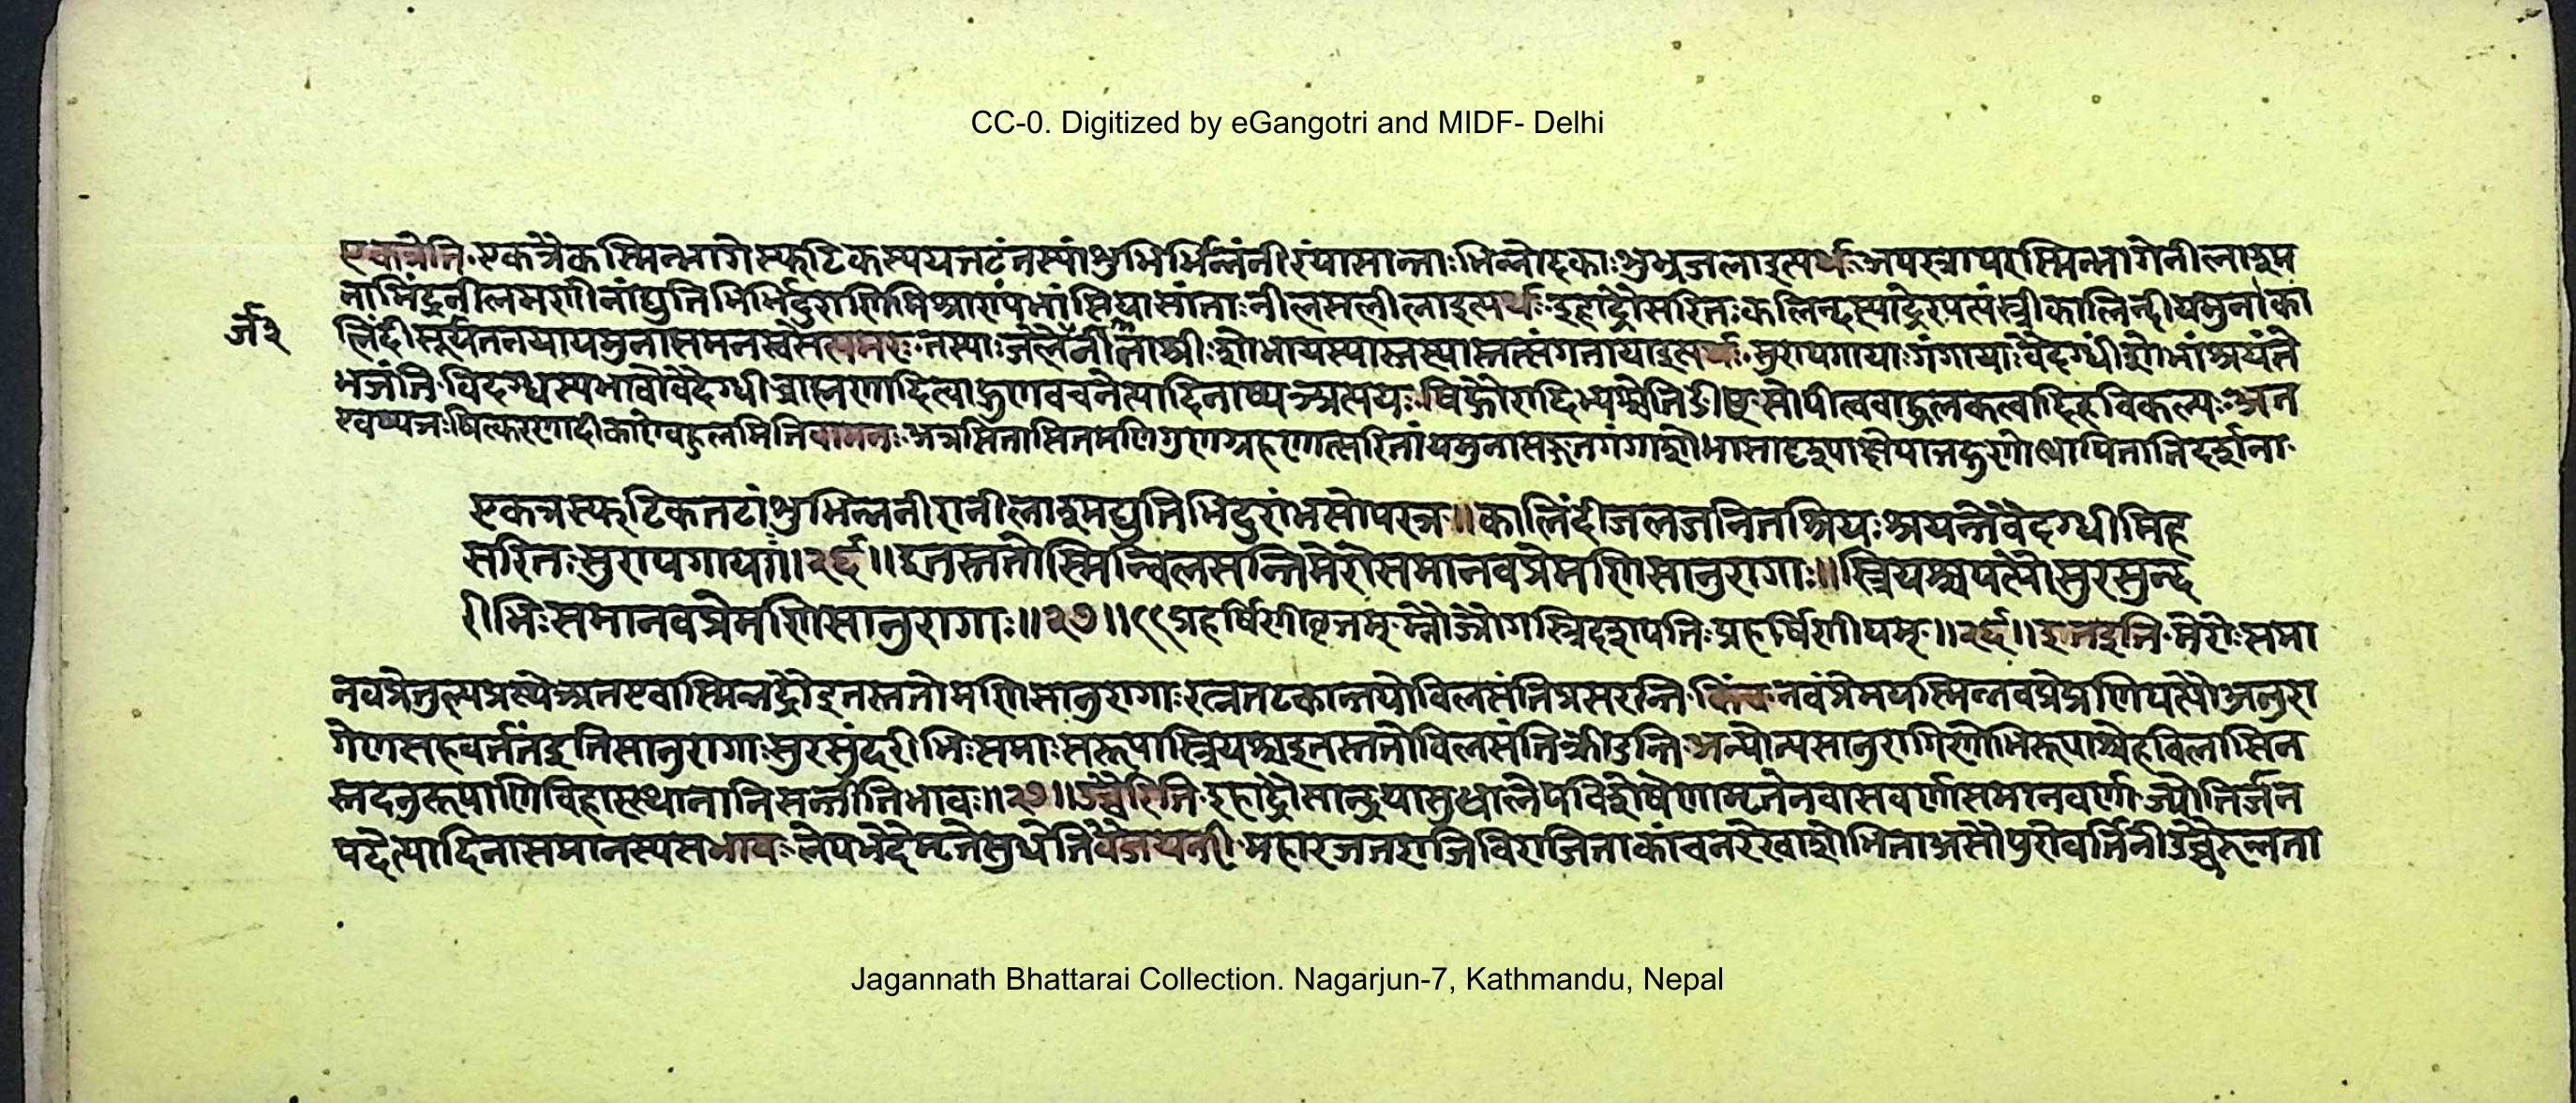 CC-0. Digitized by eGangotri and MIDF- Delhi
एकत्रेति ॰एकत्रैकस्मिन्भागे स्फटिकस्य यत्तटं तस्यांशुभिर्भिन्नं नीरं यासां ताः भिन्नोदकाः शुभ्रजला इत्यर्थः अपरत्रापरस्मिन्भागे नीलाश्म
नामिंद्रनीलमणीनां द्युतिभिर्भिदुराणि मिश्राण्यंभांसि यासां ताः नीलसलीला इत्यर्थः इहाद्रौ सरितः कलिन्दस्याद्रेरपत्यं स्त्री कालिन्दी यमुना का
लिंदी सूर्यतनया यमुना समनस्वसेत्यमरः तस्याः जलैर्जनिता श्रीः शोभा यस्यास्तस्यास्तत्संगताया इत्यर्थः सुरापगायाः गंगायाः वैदग्धीं शोभां श्रयंते
भजंति विदग्धस्य भावो वैदग्धी ब्राह्मणादित्वाद्गुणवचनेत्यादिना ष्यञ्प्रत्ययः षिद्गौरादिभ्यश्चेति ङीष् सोपीत्ववाद्गुलकत्वादिह विकल्पः अत
एव ष्यञः षित्करणादीकारो बहुलमिति वामनः अत्र सितासितमणिगुणग्रहणात्सरितां यमुनासङ्गतगंगाशोभासादृश्याक्षेपात्तद्गुणोत्थापिता निदर्शना
एकत्र स्फटिकतटांशुभिन्ननीरा नीलाश्मद्युतिभिदुरांभसोपरत्र ॥ कालिंदीजलजनितश्रियः श्रयन्ते वैदग्धीमिह
सरितः सुरापगायाः ॥२६॥ इतस्ततोस्मिन्विलसन्ति मेरोः समानवप्रे मणिसानुरागाः ॥ स्त्रियश्च पत्यौ सुरसुन्द
रीभिः समानवप्रेमणि सानुरागाः ॥२७॥ प्रहर्षिणीवृत्तम् म्नौ ज्रौ गस्त्रिदशयतिः प्रहर्षिणीयम् ॥२६॥ इतइति मेरोः समा
नवप्रे तुल्यप्रस्थे अत एवास्मिन्नद्रौ इतस्ततो मणिसानुरागाः रत्नतटकान्तयो विलसंति प्रसरन्ति किंच नवं प्रेम यस्मिन्नवप्रेम्णि पत्यौ अनुरा
गेण सह वर्तंत इति सानुरागाः सुरसुंदरीभिः समाः सरूपा स्त्रियश्च इतस्ततो विलसंति क्रीडन्ति अन्योन्यसानुरागिणोभिरूपाश्चेह विलासिन
स्तदनुरूपाणि विहारस्थानानि सन्तीति भावः ॥२७॥ उच्चैरिति इहाद्रौ सान्द्रया सुधालेपविशेषेणामृतेन वा सवर्णा समानवर्णा ज्योतिर्जन
पदेत्यादिना समानस्य सभावः लेपभेदेमृते सुधेति वैजयन्ती महारजतराजिविराजिता कांचनरेखाशोभिता असौ पुरोवर्तिनी उच्चैरुन्नता
र्ज२
Jagannath Bhattarai Collection. Nagarjun-7, Kathmandu, Nepal